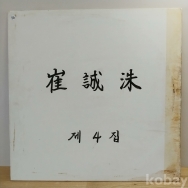 崔誠洙
제4집
kobay